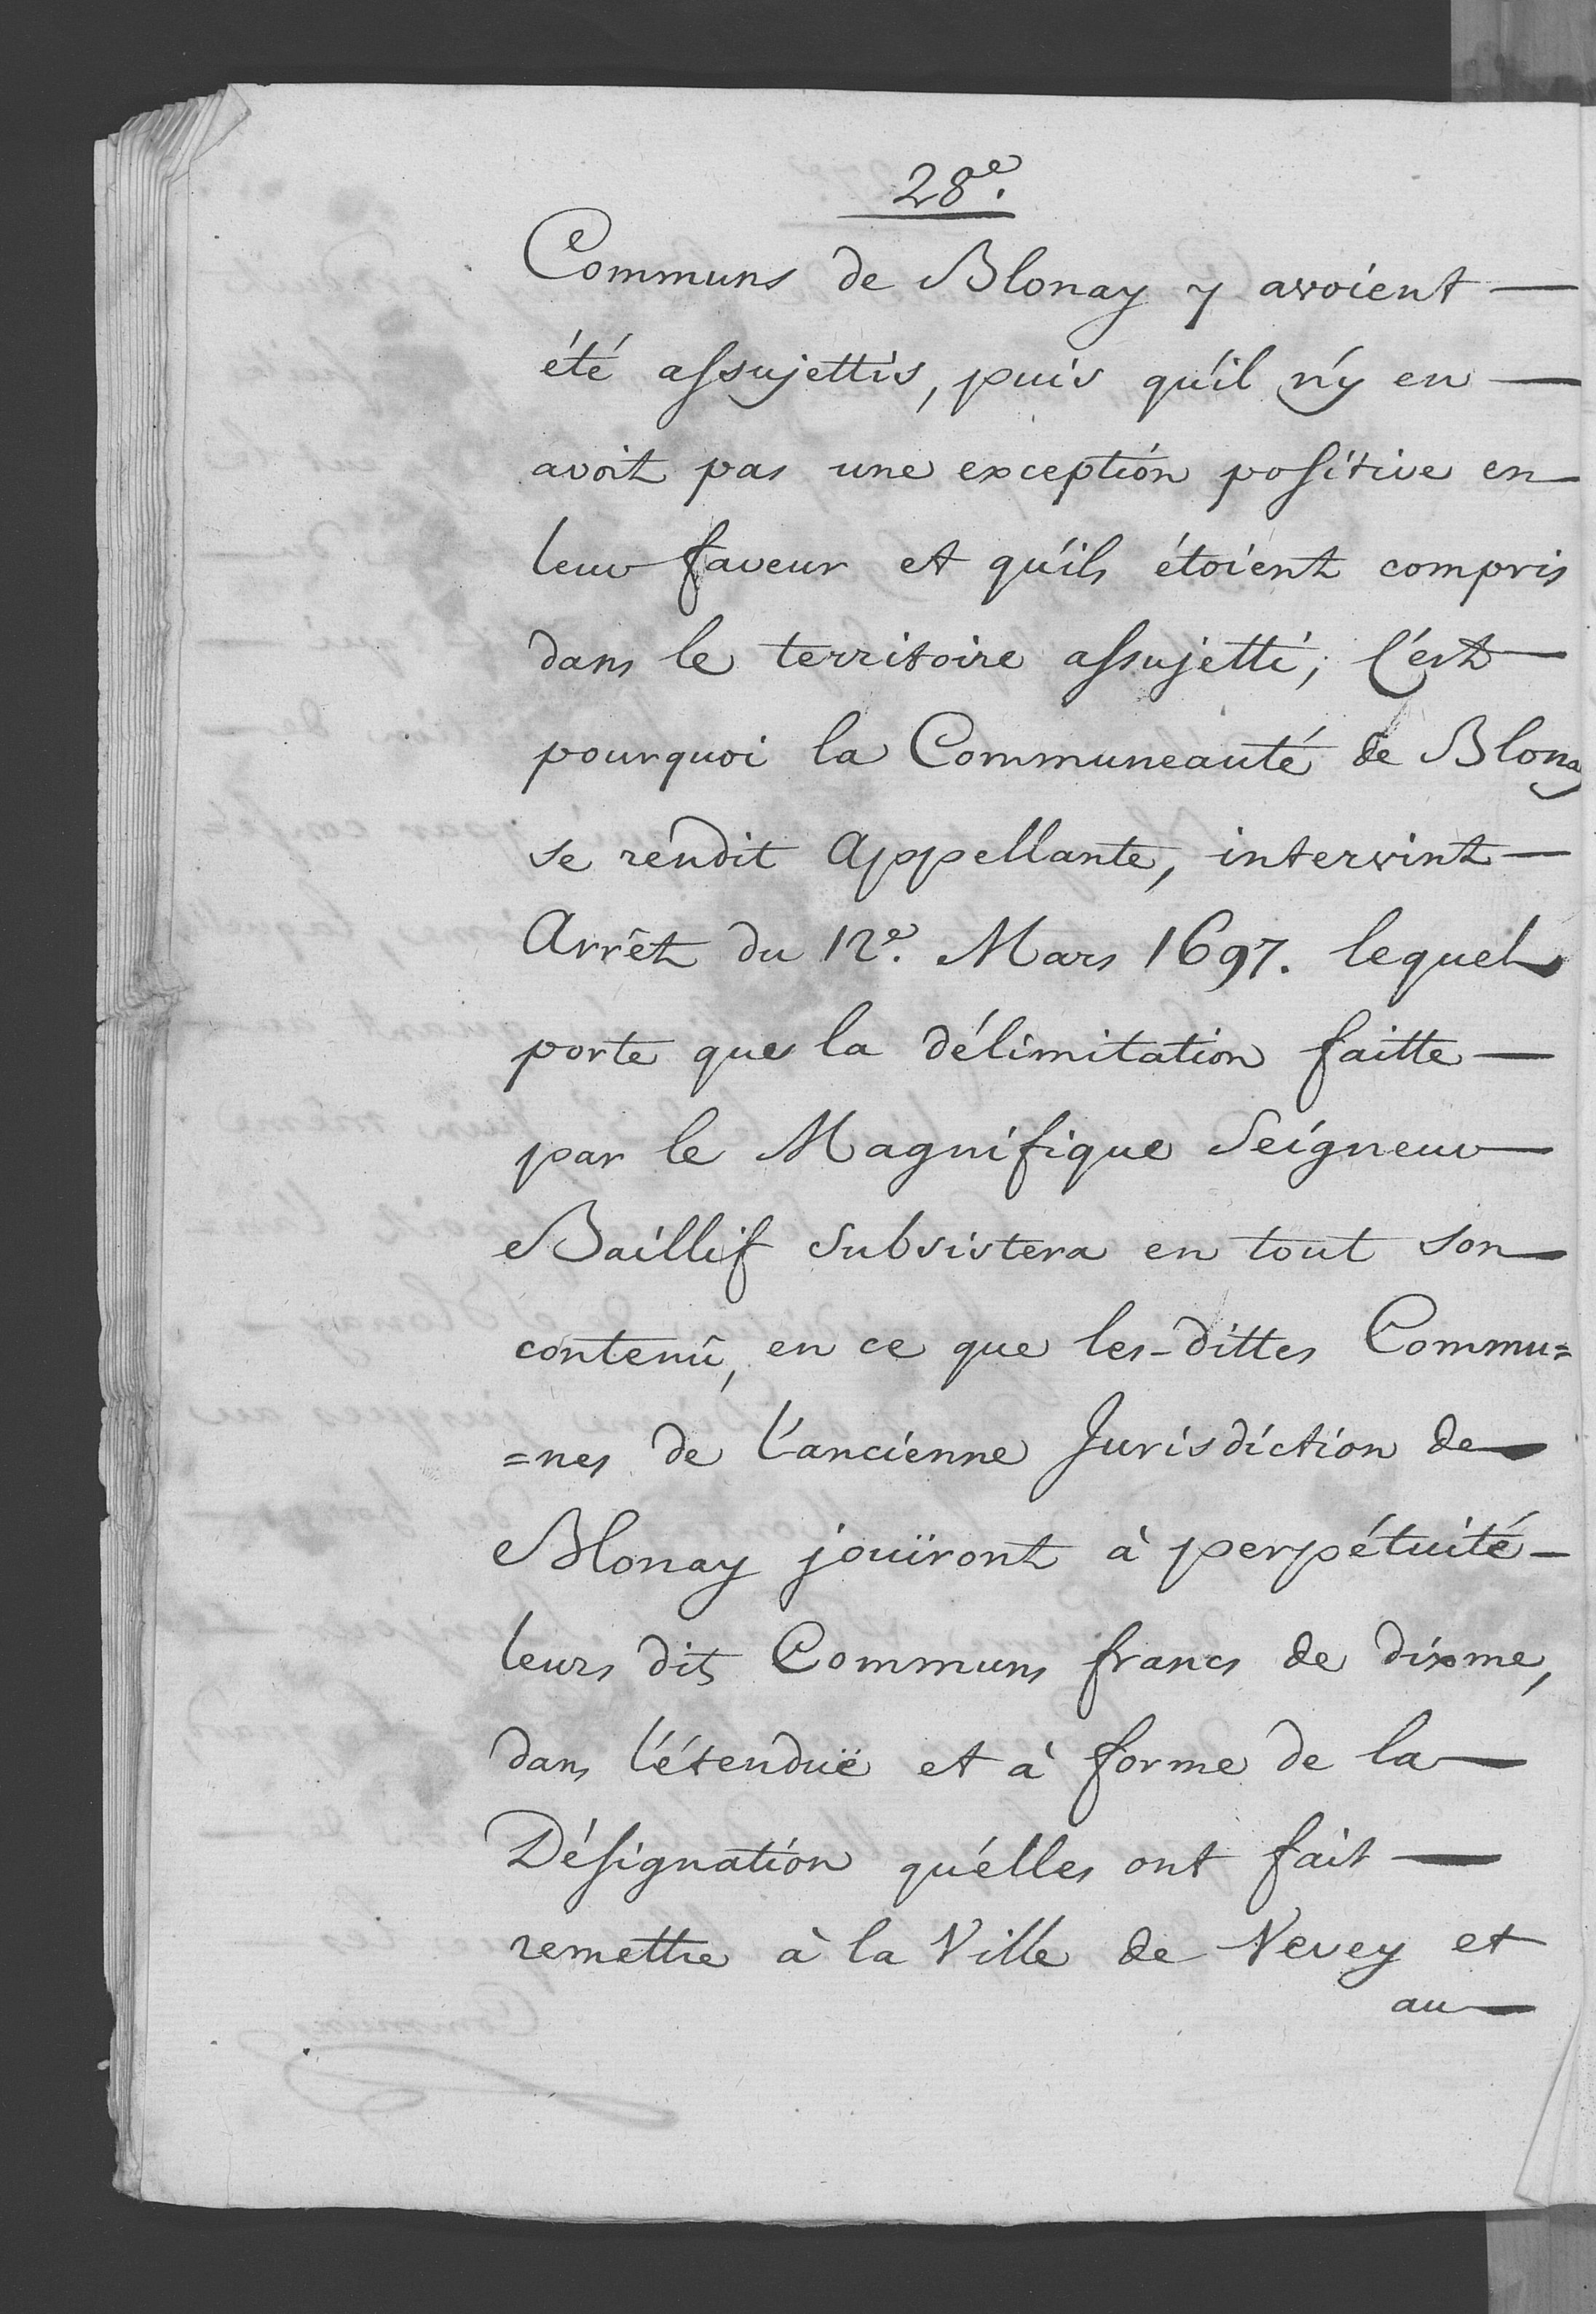 28e.
Communs de Blonay y avoient —
été assujettis, puis qu'il n'y en —
avoit pas une exception positive en —
leur faveur et qu'ils étoient compris
dans le territoire assujetti; C'est —
pourquoi la Communeauté de Blonay
se rendit Appellante, intervint —
Arrêt du 12e. Mars 1697. lequel
porte que la délimitation faitte —
par le Magnifique Seigneur —
Baillif subsistera en tout son —
contenû, en ce que les-dittes Commu=
=nes de l'ancienne Jurisdiction de —
Blonay jouïront à perpétuité —
leurs dits Communs francs de dixme,
dans l'étenduë et à forme de la —
Désignation qu'elles ont fait —
remettre à la Ville de Vevey et
au —